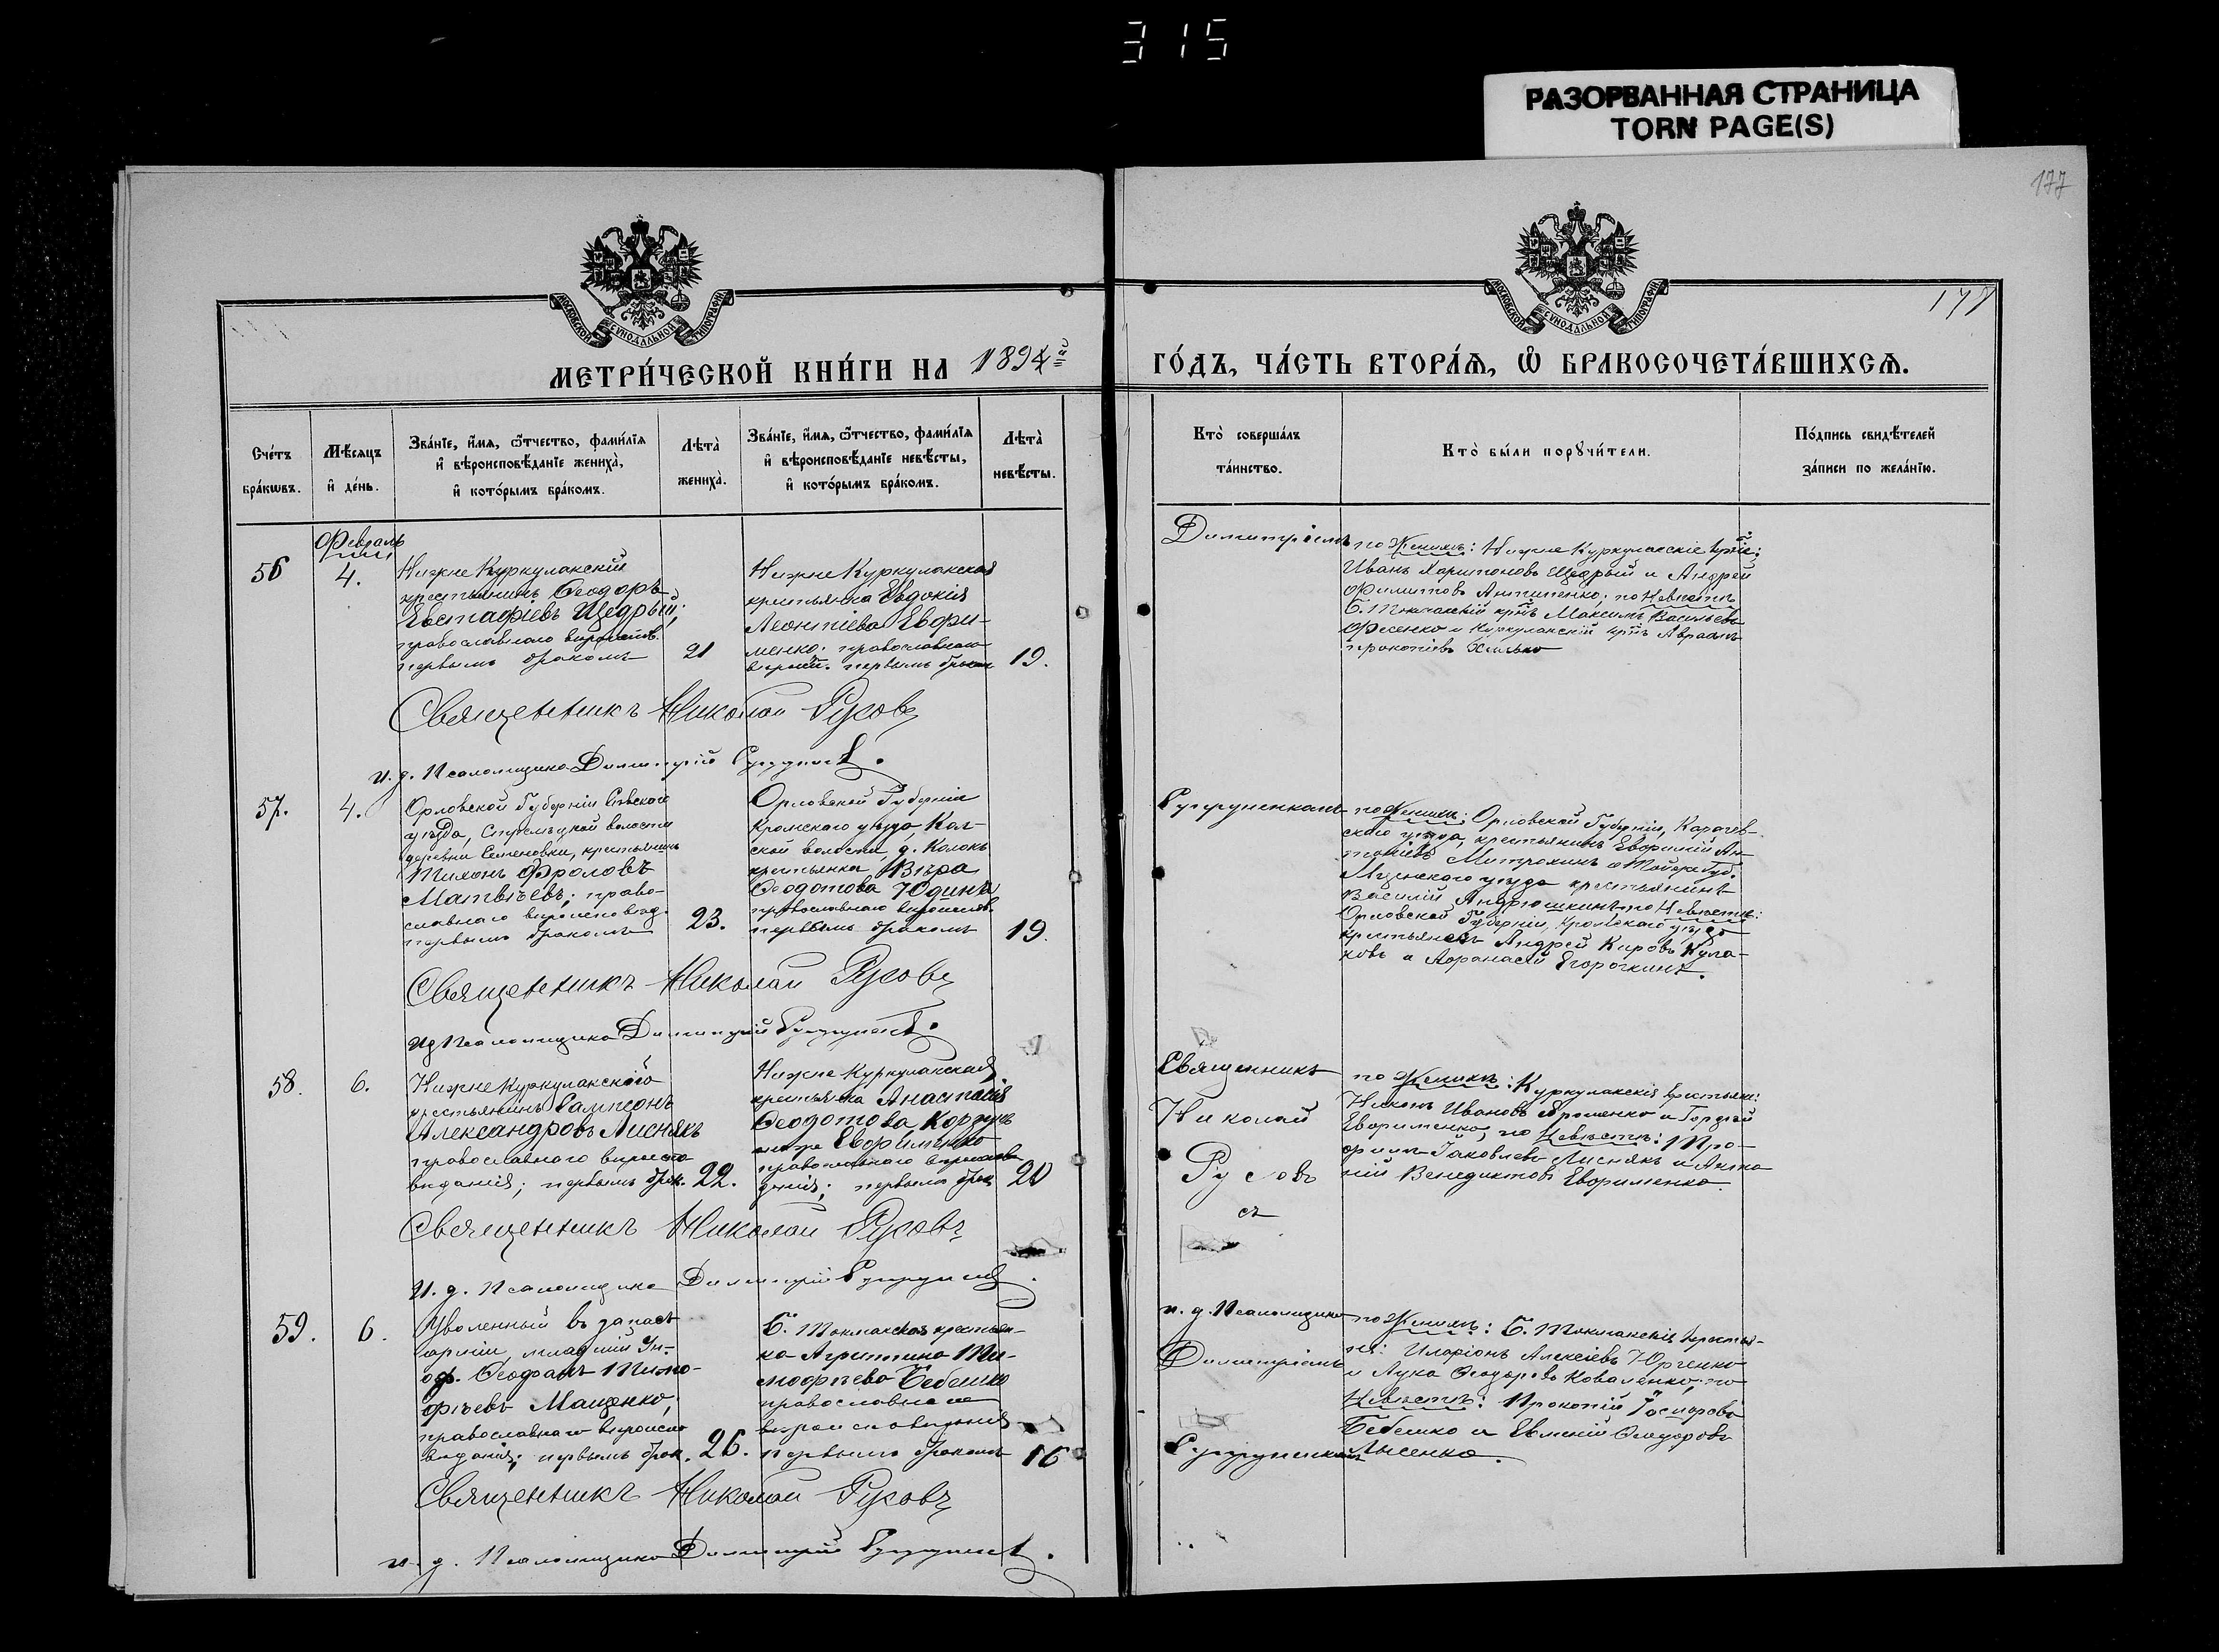 315
РАЗОРВАННАЯ СТРАНИЦА
TORN PAGE(S)
177
МОСКОВСКОЙ СѴНОДАЛЬНОЙ ТИПОГРАФІИ
МОСКОВСКОЙ СѴНОДАЛЬНОЙ ТИПОГРАФІИ
МЕТРИ́ЧЕСКОЙ КНИ́ГИ НА 1894й ГО́ДЪ, ЧА́СТЬ ВТОРА́Ѧ, Ѽ БРАКОСОЧЕТА́ВШИХСѦ.
Сче́тъ бра́кѡвъ.
Мѣ́сяцъ и҆ де́нь.
Зва́нїе, и҆́мя, ѻ҆́тчество, фами́лїя
и҆ вѣроисповѣ́данїе жениха̀,
и҆ кото́рымъ бра́комъ.
Лѣта̀ жениха̀.
Зва́нїе, и҆́мя, ѻ҆́тчество, фами́лїя
и҆ вѣроисповѣ́данїе невѣ́сты,
и҆ кото́рымъ бра́комъ.
Лѣта̀ невѣ́сты.
Кто̀ соверша́лъ
та́инство.
Кто̀ бы́ли порꙋчи́тели.
По́дпись свидѣ́телей
за́писи по жела́нїю.
Февраль
56
4.
Нижне Куркулакскій
крестьянинъ Ѳеодоръ
Евстафіевъ Щедрый;
православнаго вѣроиспов.
первымъ бракомъ
21
Нижне Куркулакская
крестьянка Евдокія
Леонтіева Ефи-
менко; православнаго
вѣроисп. первымъ браком
19.
Димитріемъ
по Женихѣ: Нижне Куркулакскіе кр-не:
Иванъ Харитоновъ Щедрый и Андрей
Филиповъ Антипенко; по Невѣстѣ
Б. Токмакскій кр-нъ Максимъ Васильевъ
Фесенко и Куркулакскій кр-нъ Авраамъ
Прокопіевъ
Священникъ Николай Русовъ
и. д. Псаломщика Димитрій
57.
4.
Орловской Губерніи Сѣвскаго
уѣзда, Стрѣлецкой волости
деревни Семеновки, крестьянинъ
Тихонъ Фроловъ
Матвѣевъ; право-
славнаго вѣроисповѣд.
первымъ бракомъ
23.
Орловской Губерніи
Кромскаго уѣзда,
ской волости, д.
крестьянка Вѣра
Ѳеодотова Юдина
православнаго вѣроиспов.
первымъ бракомъ
19.
по Женихѣ: Орловской Губерніи, Карачев-
скаго уѣзда, крестьянинъ Ефимій Ан-
Митрохинъ и
Мценскаго уѣзда крестьянинъ
Василій Андрюшкинъ; по Невѣстѣ:
Орловской Губерніи, Кромскаго уѣзда
крестьяне Андрей Кировъ Кула-
ковъ и Афанасій Егорочкинъ.
Священникъ Николай Русовъ
ид Псаломщика Димитрій
58.
6.
Нижне Куркулакскаго
крестьянинъ Сампсонъ
Александровъ Лиснякъ
православнаго вѣроиспо
вѣданія; первымъ брак.
22.
Нижне Куркулакская
крестьянка Анастасія
Ѳеодотова Корзунъ
она же Ефименко
православнаго вѣроисповѣ
данія; первымъ брак
20
Священникъ
Николай
Русовъ
съ
по Женихѣ: Куркулакскія крестьяне:
Никонъ Ивановъ Ярошенко и Гордѣй
Ефименко; по Невѣстѣ: Тро-
фимъ Іаковлевъ Лиснякъ и Анто
ній Венедиктовъ Ефименко.
Священникъ Николай Русовъ
и. д. Псаломщика Димитрій
59.
6.
Уволенный въ запасъ
арміи, младшій Ун.-
оф. Ѳеофанъ Тимо-
фѣевъ Мащенко,
православнаго вѣроиспо
вѣданія; первымъ брак.
26.
Б. Токмакская крестьян-
ка Агриппина Ти-
мофѣева Бебешко
православнаго
вѣроисповѣданія
первымъ бракомъ
16
и. д. Псаломщика
Димитріемъ
по Женихѣ: Б. Токмакскія крестья-
не: Иларіонъ Алексіевъ Юрченко
и Лука Ѳеодоровъ Коваленко; по
Невѣстѣ: Прокопій
Бебешко и Евменій Ѳеодоровъ
Лысенко.
Священникъ Николай Русовъ
и. д. Псаломщика Димитрій